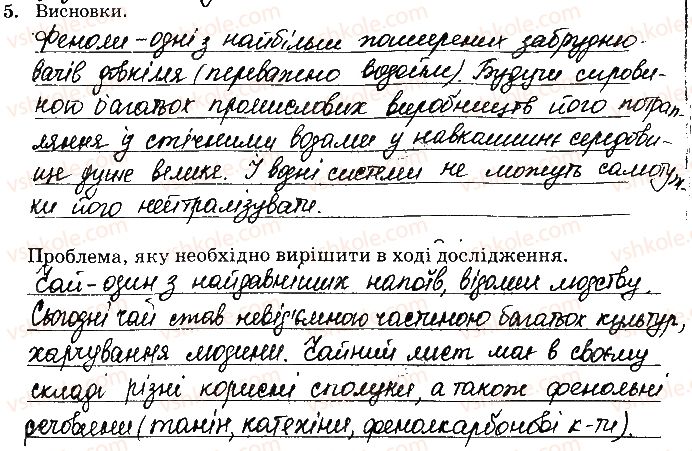 5. Висновки.
Феноли - одні з найбільш поширених забрудню-
вачів довкіля (переважно водойми). Будучи сирови-
ною багатьох промислових виробництв його потрап-
ляння із стічними водами у навкашинє середови-
ще дуже велике. І водні системи не можуть самоту-
ки його нейтралізувати.
Проблема, яку необхідно вирішити в ході дослідження.
Чай - один з найдавніших напоїв, відоми людству.
Сьогодні чай став невід'ємною частиною багатьох культур,
харчування людини. Чайний лист має в своєму
складі різні корисні сполуки, а також фенольні
речовини (танін, катехіни, фенолкарбонові к-ти).